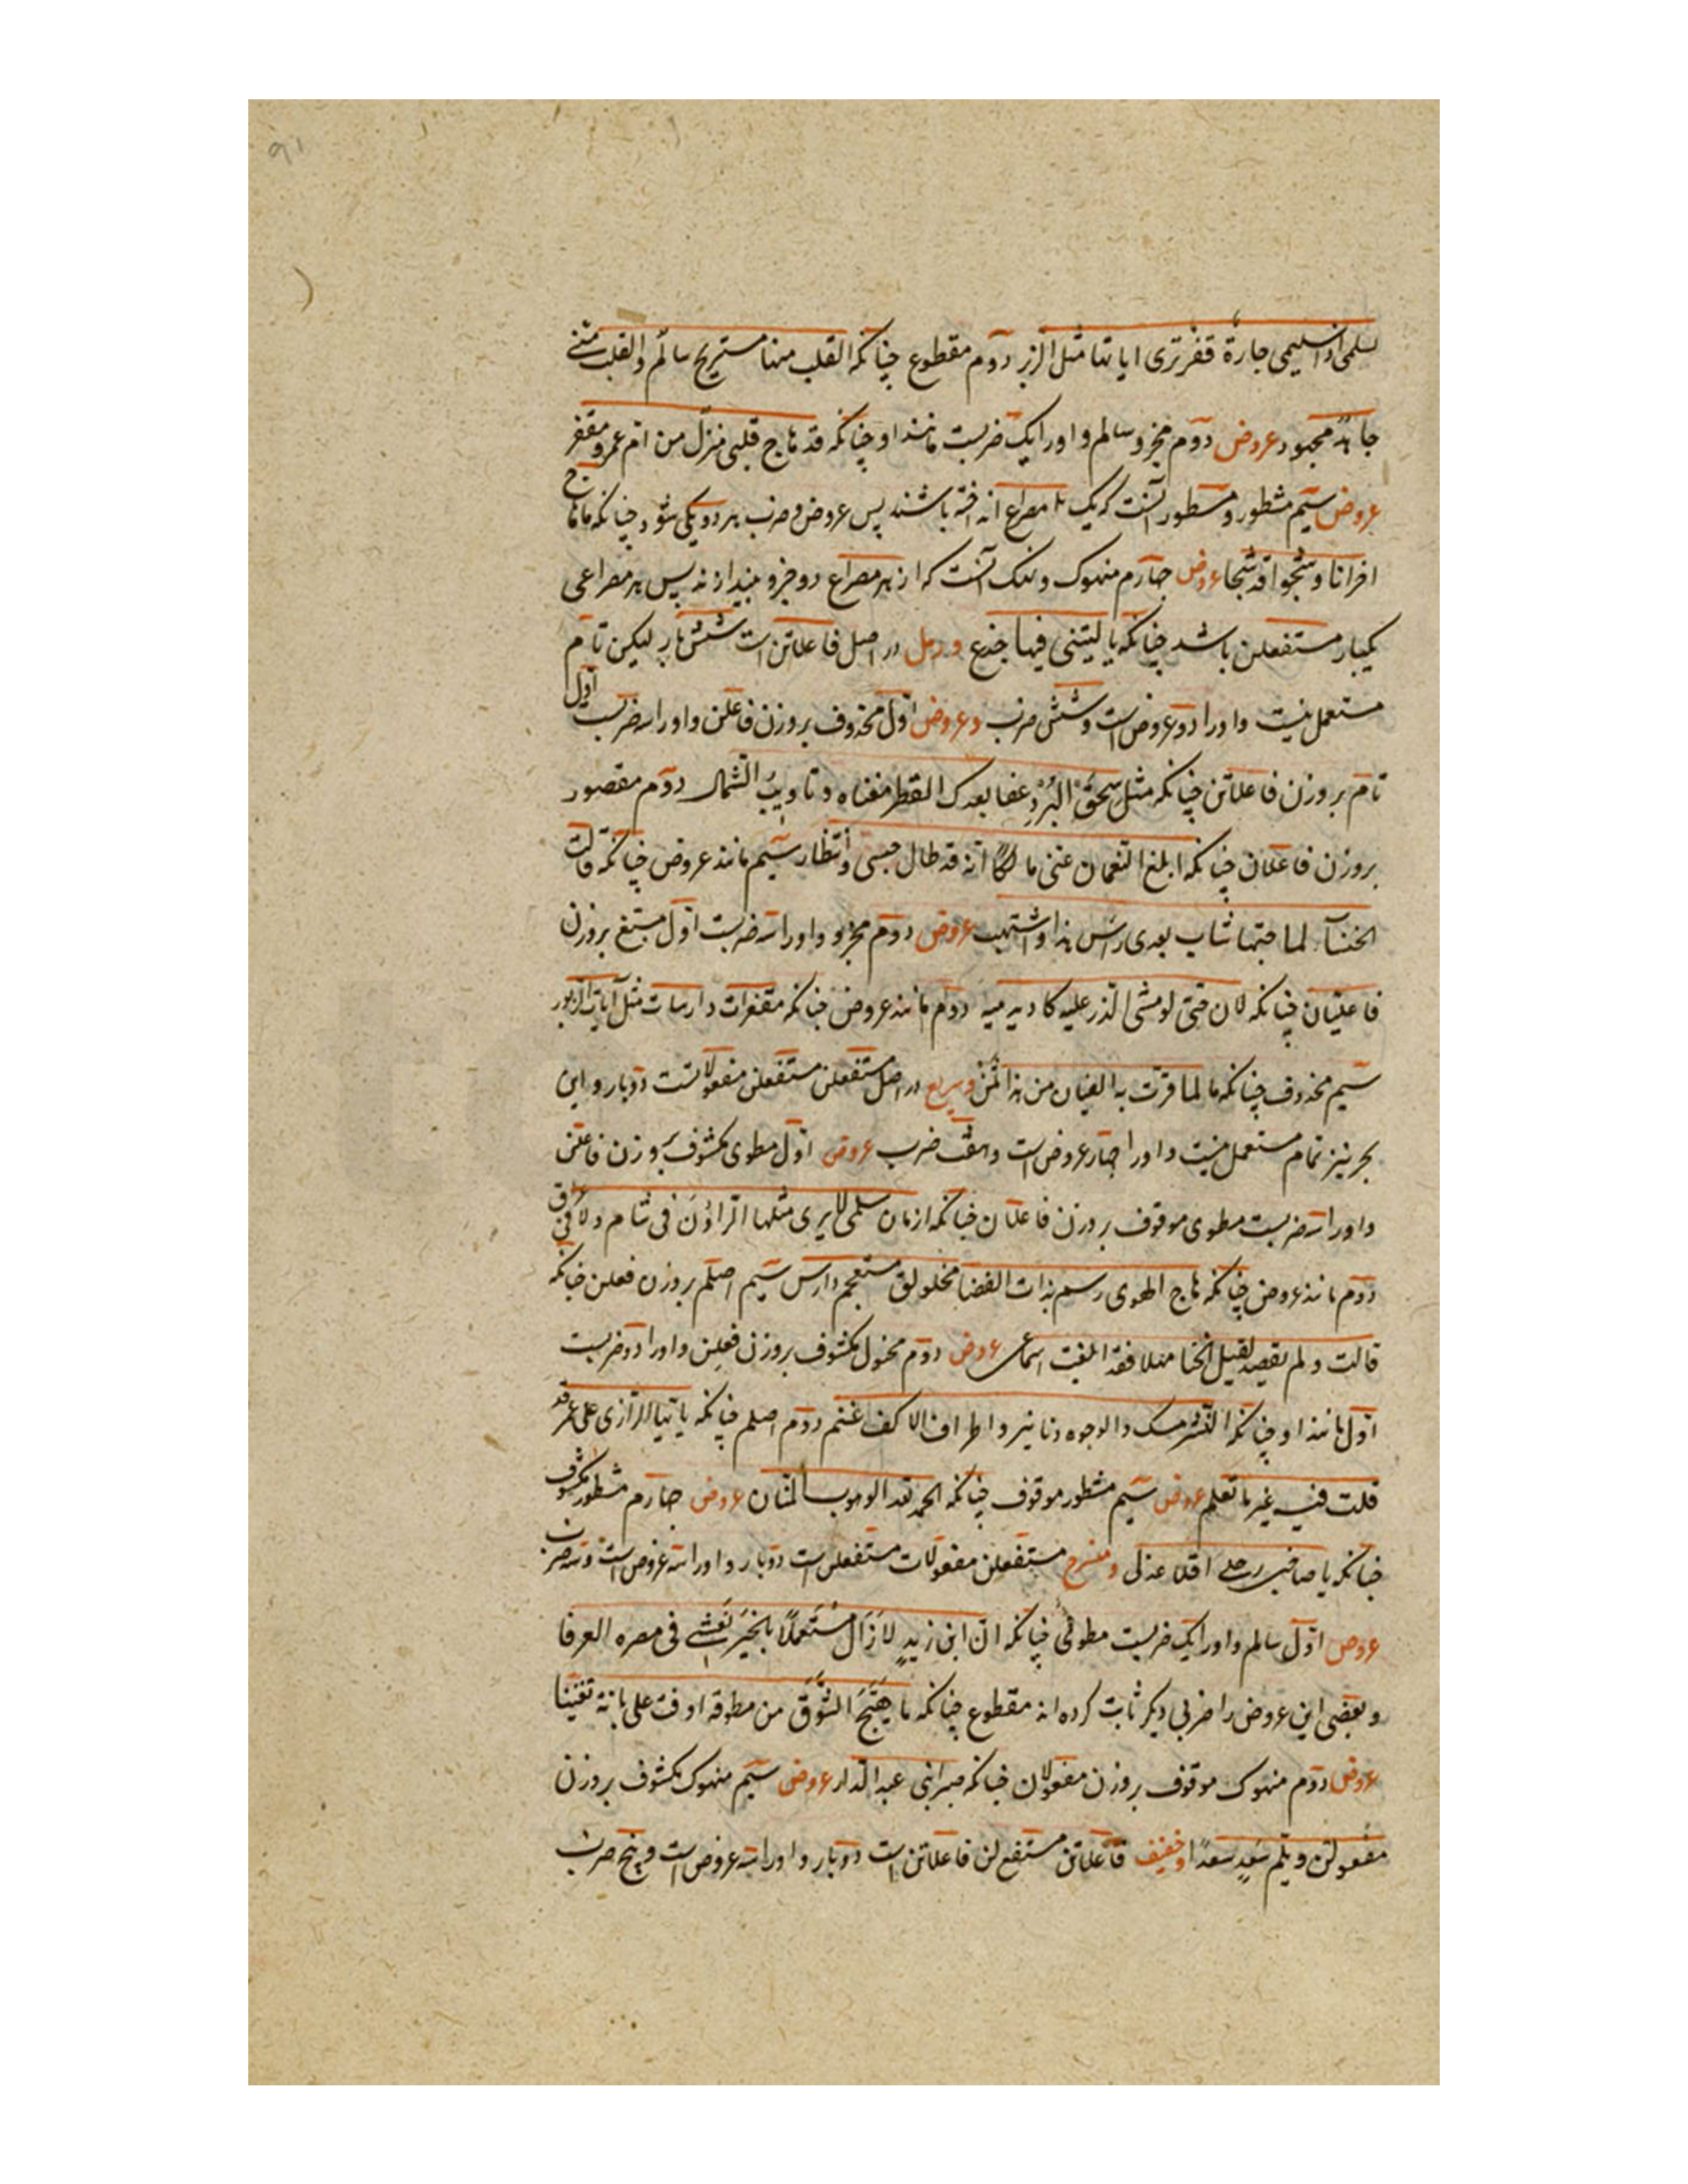 ۹۱
لسلمی اذ سلیمی جارة قفر تری ایاتها مثل الزبر دوم مقطوع چنانکه القلب منها مستریح سالم والقلب منی
جاهد مجهود عروض دوم مجزو سالم و اورا یک ضربست مانند او چنانکه قد هاج قلبی منزل من ام عمرو مقفر
عروض سیم مشطور و مشطور آنست که یک مصراع انداخته باشند پس عروض و ضرب هر دو یکی شود چنانکه ما هاج
احزانا و شجوا قد شجا عروض چهارم منهوک و نهک آنست که از هر مصراع دو جزو بیندازند پس هر مصراعی
یکبار مستفعلن باشد چنانکه یا لیتنی فیها جذع و رمل در اصل فاعلاتن است شش بار لیکن تام
مستعمل نیست و اورا دو عروض است و شش ضرب و عروض اول محذوف بروزن فاعلن و اورا سه ضربست اول
تام بروزن فاعلاتن چنانکه مثل سحق البرد عفا بعدک القطر مغناه و تاویب الشمال دوم مقصور
بروزن فاعلان چنانکه ابلغ النعمان عنی مالکا انه قد طال حبسی و انتظار سیم مانند عروض چنانکه قالت
الخنساء لما جئتها شاب بعدی رأس هذا و اشتهب عروض دوم مجزو و اورا سه ضربست اول مسبغ بروزن
فاعلیان چنانکه لان حتی لو مشی الذر علیه کاد یدمیه دوم مانند عروض چنانکه مقفرات دارسات مثل آیات الزبور
سیم محذوف چنانکه ما لما قرت به العینان من هذا ثمن و سریع در اصل مستفعلن مستفعلن مفعولاتست دوبار و این
بحر نیز تمام مستعمل نیست و اورا چهار عروض است و هفت ضرب عروض اول مطوی مکشوف بروزن فاعلن
و اورا سه ضربست مطوی موقوف بروزن فاعلان چنانکه ازمان سلمی لا یری مثلها الراؤن فی شام و لا فی عراق
دوم مانند عروض چنانکه هاج الهوی رسم بذات الغضا مخلولق مستعجم دارس سیم اصلم بروزن فعلن چنانکه
قالت و لم تقصد لقیل الخنا مهلا فقد ابلغت اسماعی عروض دوم مخبول مکشوف بروزن فعلن و اورا دو ضربست
اول مانند او چنانکه النشر مسک و الوجوه دنانیر و اطراف الاکف عنم دوم اصلم چنانکه یا ایها الزاری علی عمر قد
قلت فیه غیر ما تعلم عروض سیم مشطور موقوف چنانکه الحمد لله الوهوب المنان عروض چهارم مشطور مکشوف
چنانکه یا صاحبی رحلی اقلا عذلی و منسرح مستفعلن مفعولات مستفعلن است دوبار و اورا سه عروض است و سه ضرب
عروض اول سالم و اورا یک ضربست مطوی چنانکه ان ابن زید لا زال مستعملا بالخیر یفشی فی مصره العرفا
و بعضی این عروض را ضربی دیگر ثابت کرده اند مقطوع چنانکه ما هیج الشوق من مطوقة اوفت علی بانة تغنینا
عروض دوم منهوک موقوف بروزن مفعولان چنانکه صبرا بنی عبد الدار عروض سیم منهوک مکشوف بروزن
مفعولن ویلم سعد سعدا و خفیف فاعلاتن مستفع لن فاعلاتن است دوبار و اورا سه عروض است و پنج ضرب